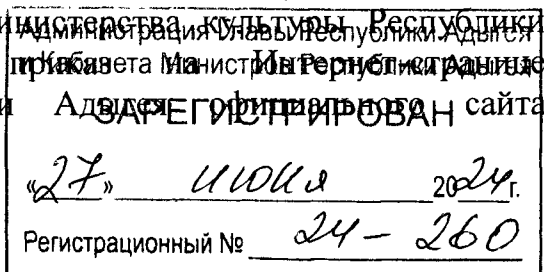 инистерства культуры Республики
Администрация Главы Республики Адыгея
приказ на Интернет-странице
и Кабинета Министров Республики Адыгея
и Адыгея официального сайта
ЗАРЕГИСТРИРОВАН
«27» июня 2024г.
Регистрационный № 24-260